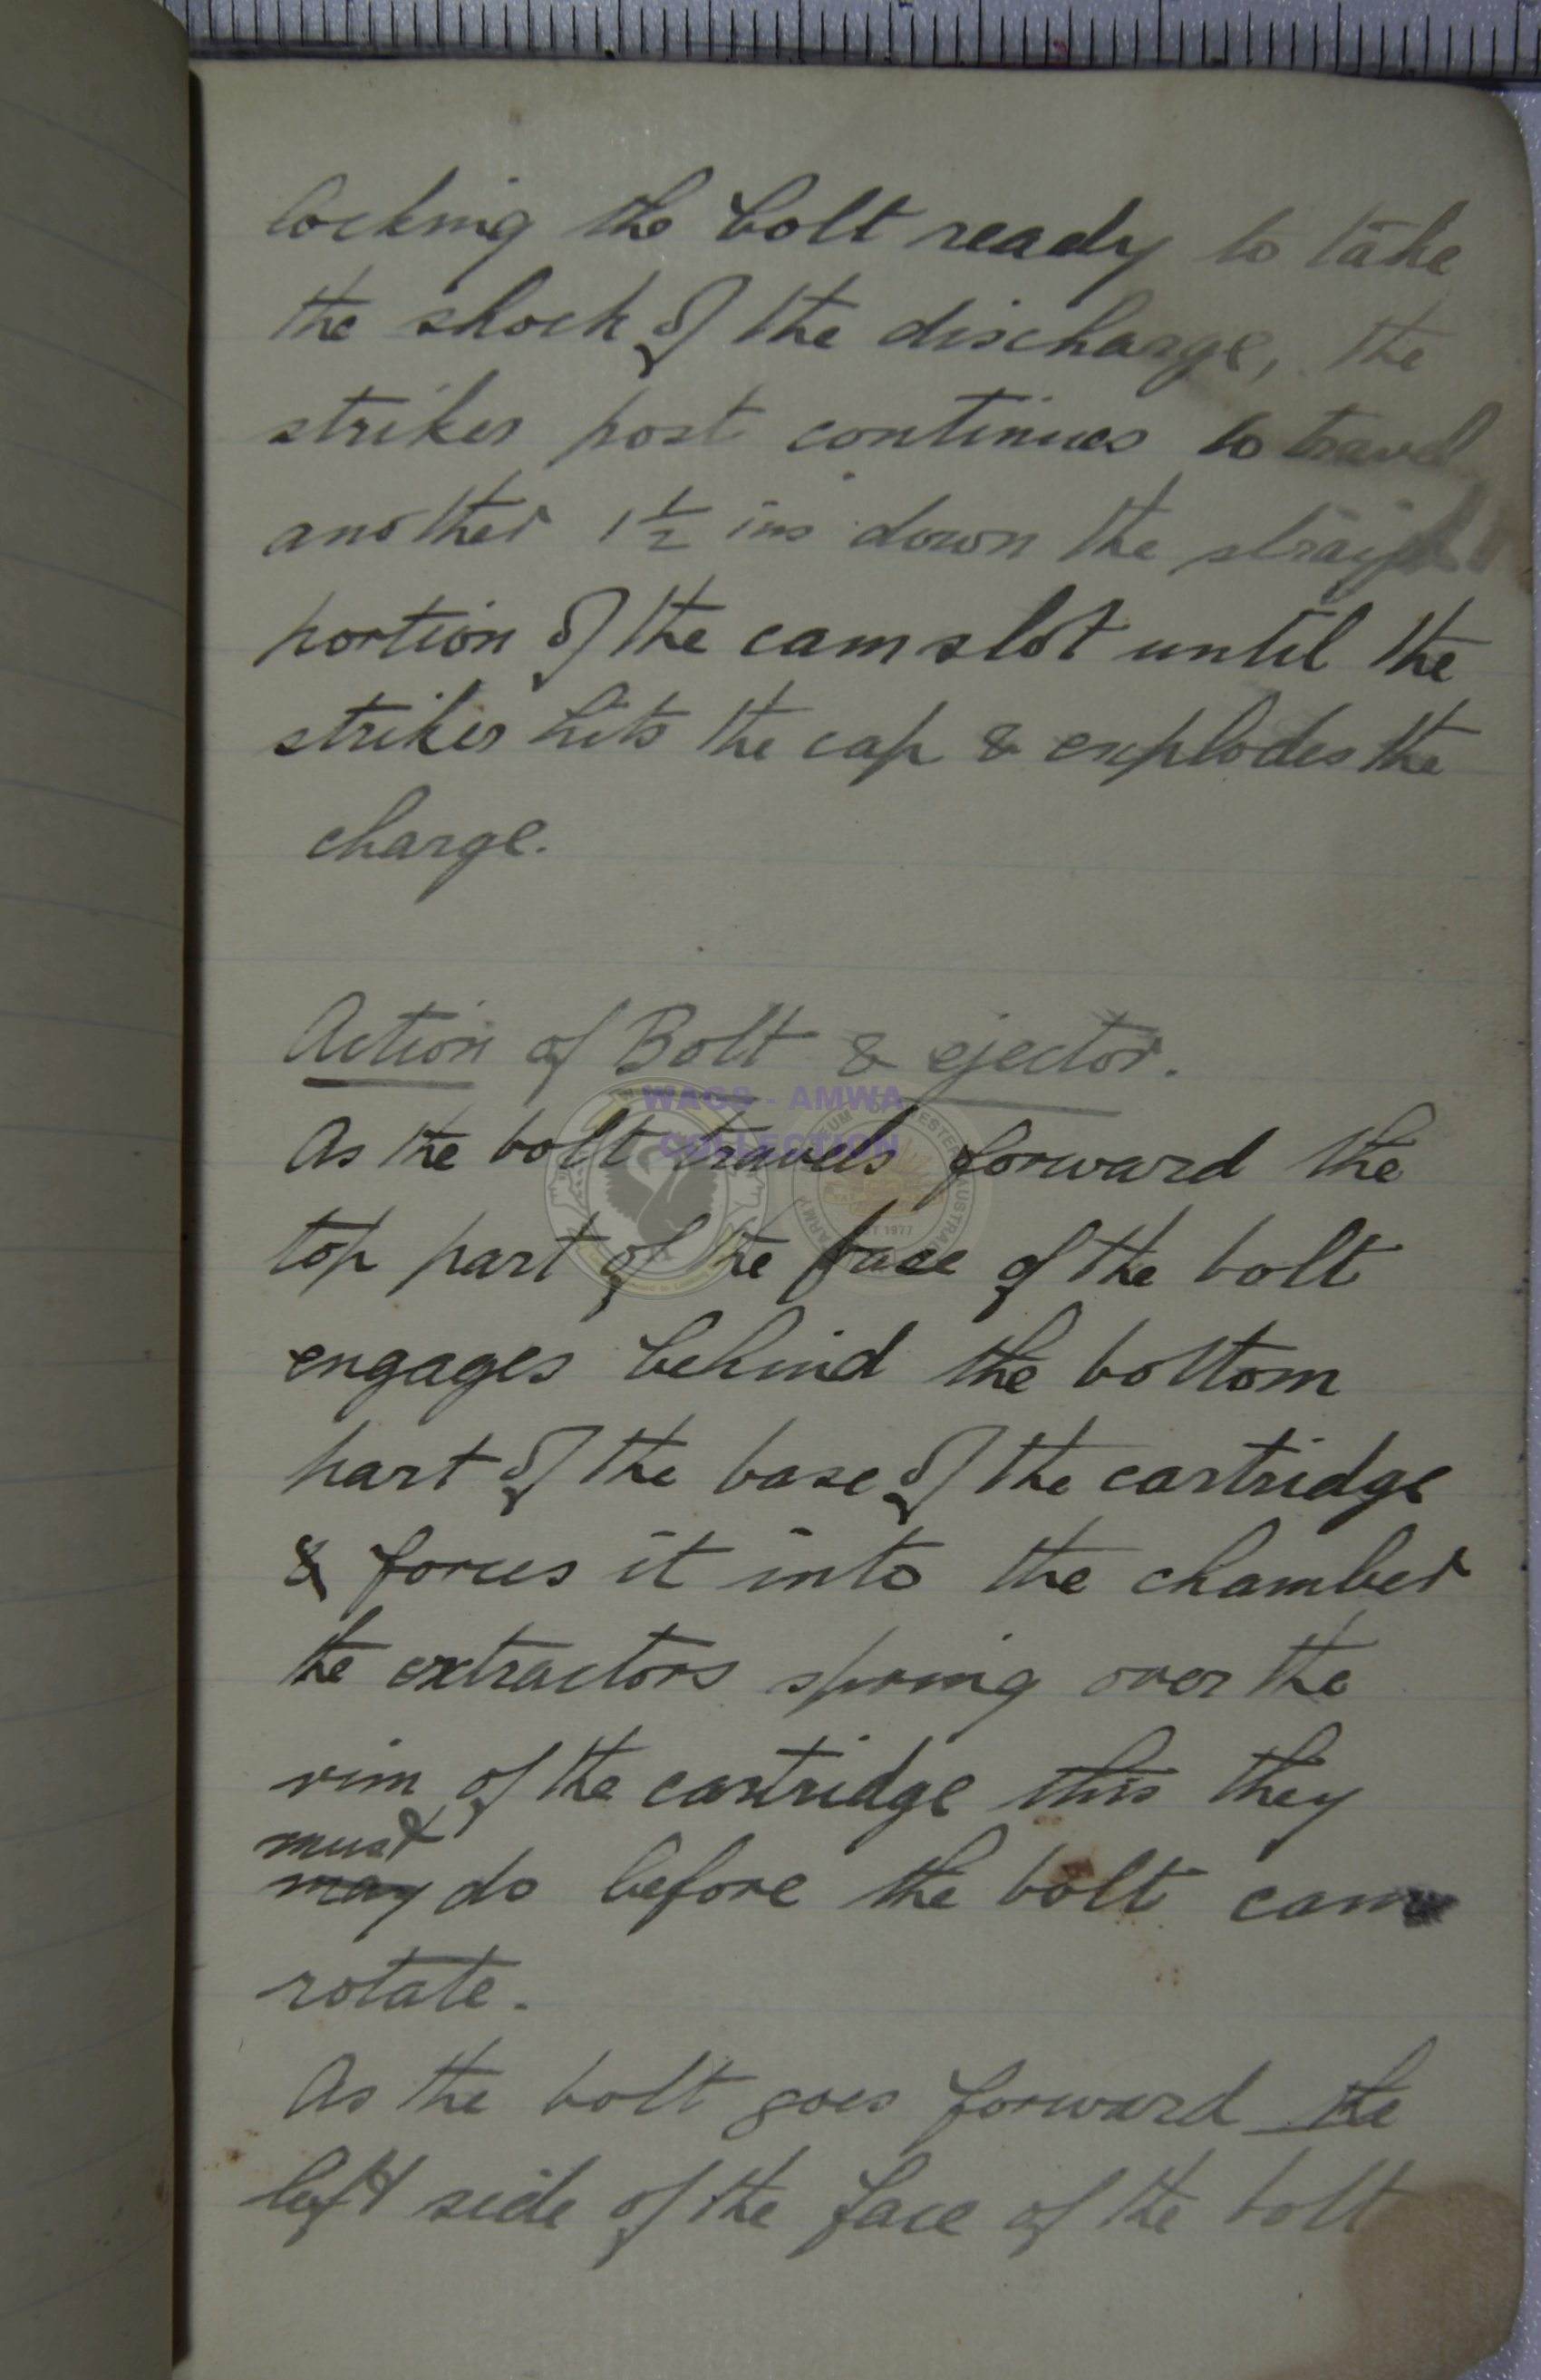 locking the bolt ready to take
the shock of the discharge, the
striker post continues to travel
another 1½ ins down the straight
portion of the cam slot until the
striker hits the cap & explodes the
charge.
Action of Bolt & ejector.
WAGS - AMWA
COLLECTION
As the bolt travels forward the
top part of the face of the bolt
engages behind the bottom
part of the base of the cartridge
& forces it into the chamber
the extractors spring over the
rim of the cartridge this they
must
may do before the bolt can
rotate.
As the bolt goes forward the
left side of the face of the bolt